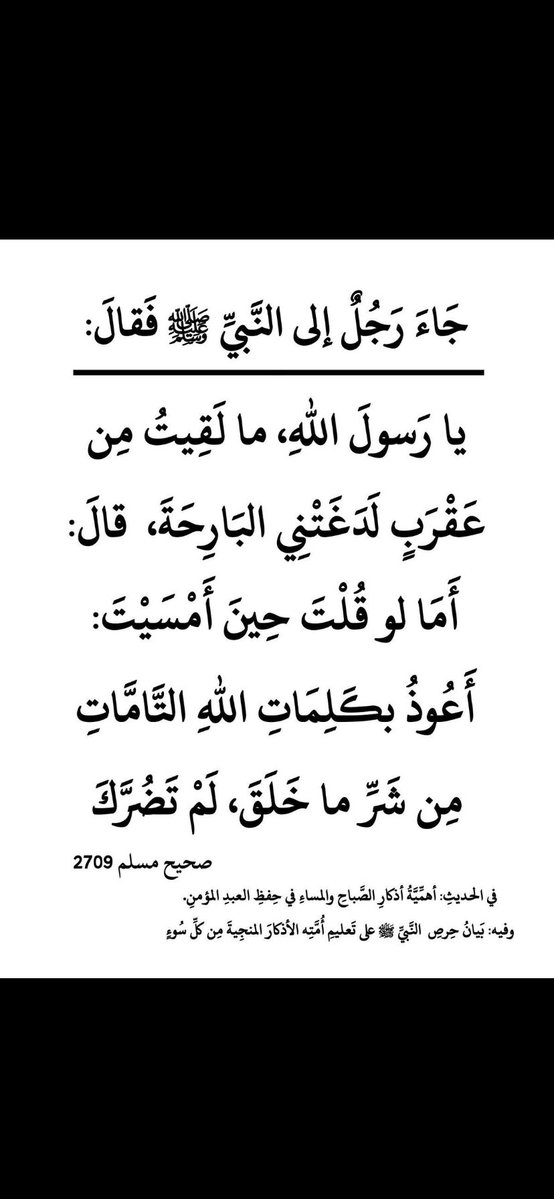 جَاءَ رَجُلٌ إلى النَّبيِّ ﷺ فَقالَ:
يا رَسولَ اللهِ، ما لَقِيتُ مِن
عَقْرَبٍ لَدَغَتْنِي البَارِحَةَ، قالَ:
أَمَا لو قُلْتَ حِينَ أَمْسَيْتَ:
أَعُوذُ بكَلِمَاتِ اللهِ التَّامَّاتِ
مِن شَرِّ ما خَلَقَ، لَمْ تَضُرَّكَ
صحيح مسلم 2709
في الحديثِ: أهمِّيَّةُ أذكارِ الصَّباحِ والمساءِ في حِفظِ العبدِ المؤمنِ.
وفيه: بَيانُ حِرصِ النَّبيِّ ﷺ على تَعليمِ أُمَّتِه الأذكارَ المنجِيةَ مِن كلِّ سُوءٍ